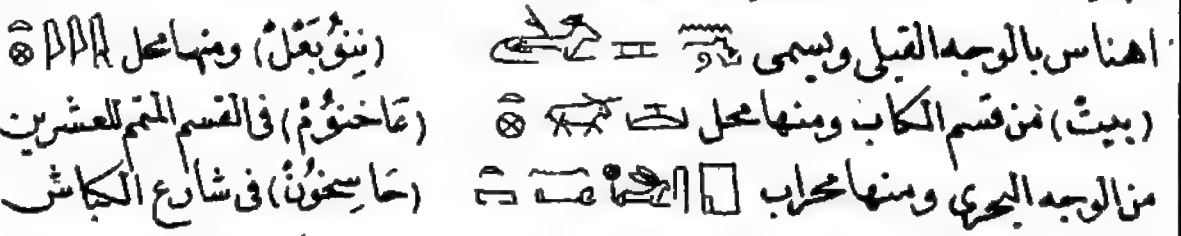 اهناس بالوجه القبلى ويسمى (نِبنوُبَعْلْ) ومنها محل
(بيتْ) من قسم الكاب ومنها محل (عَاخنوُمْ) فى القسم المتمم للعشرين
من الوجه البحرى ومنها محراب (حَاسِحنوُنْ) فى شارع الكباش